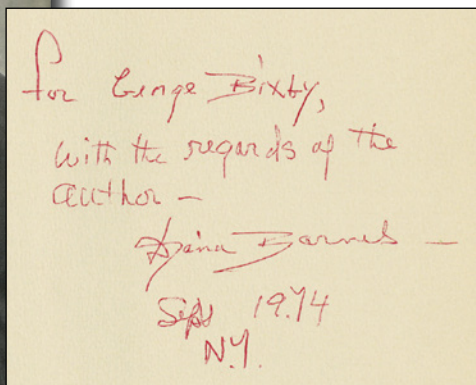 for George Bixby,
with the regards of the
author —
Djuna Barnes —
Sept 1974
N.Y.